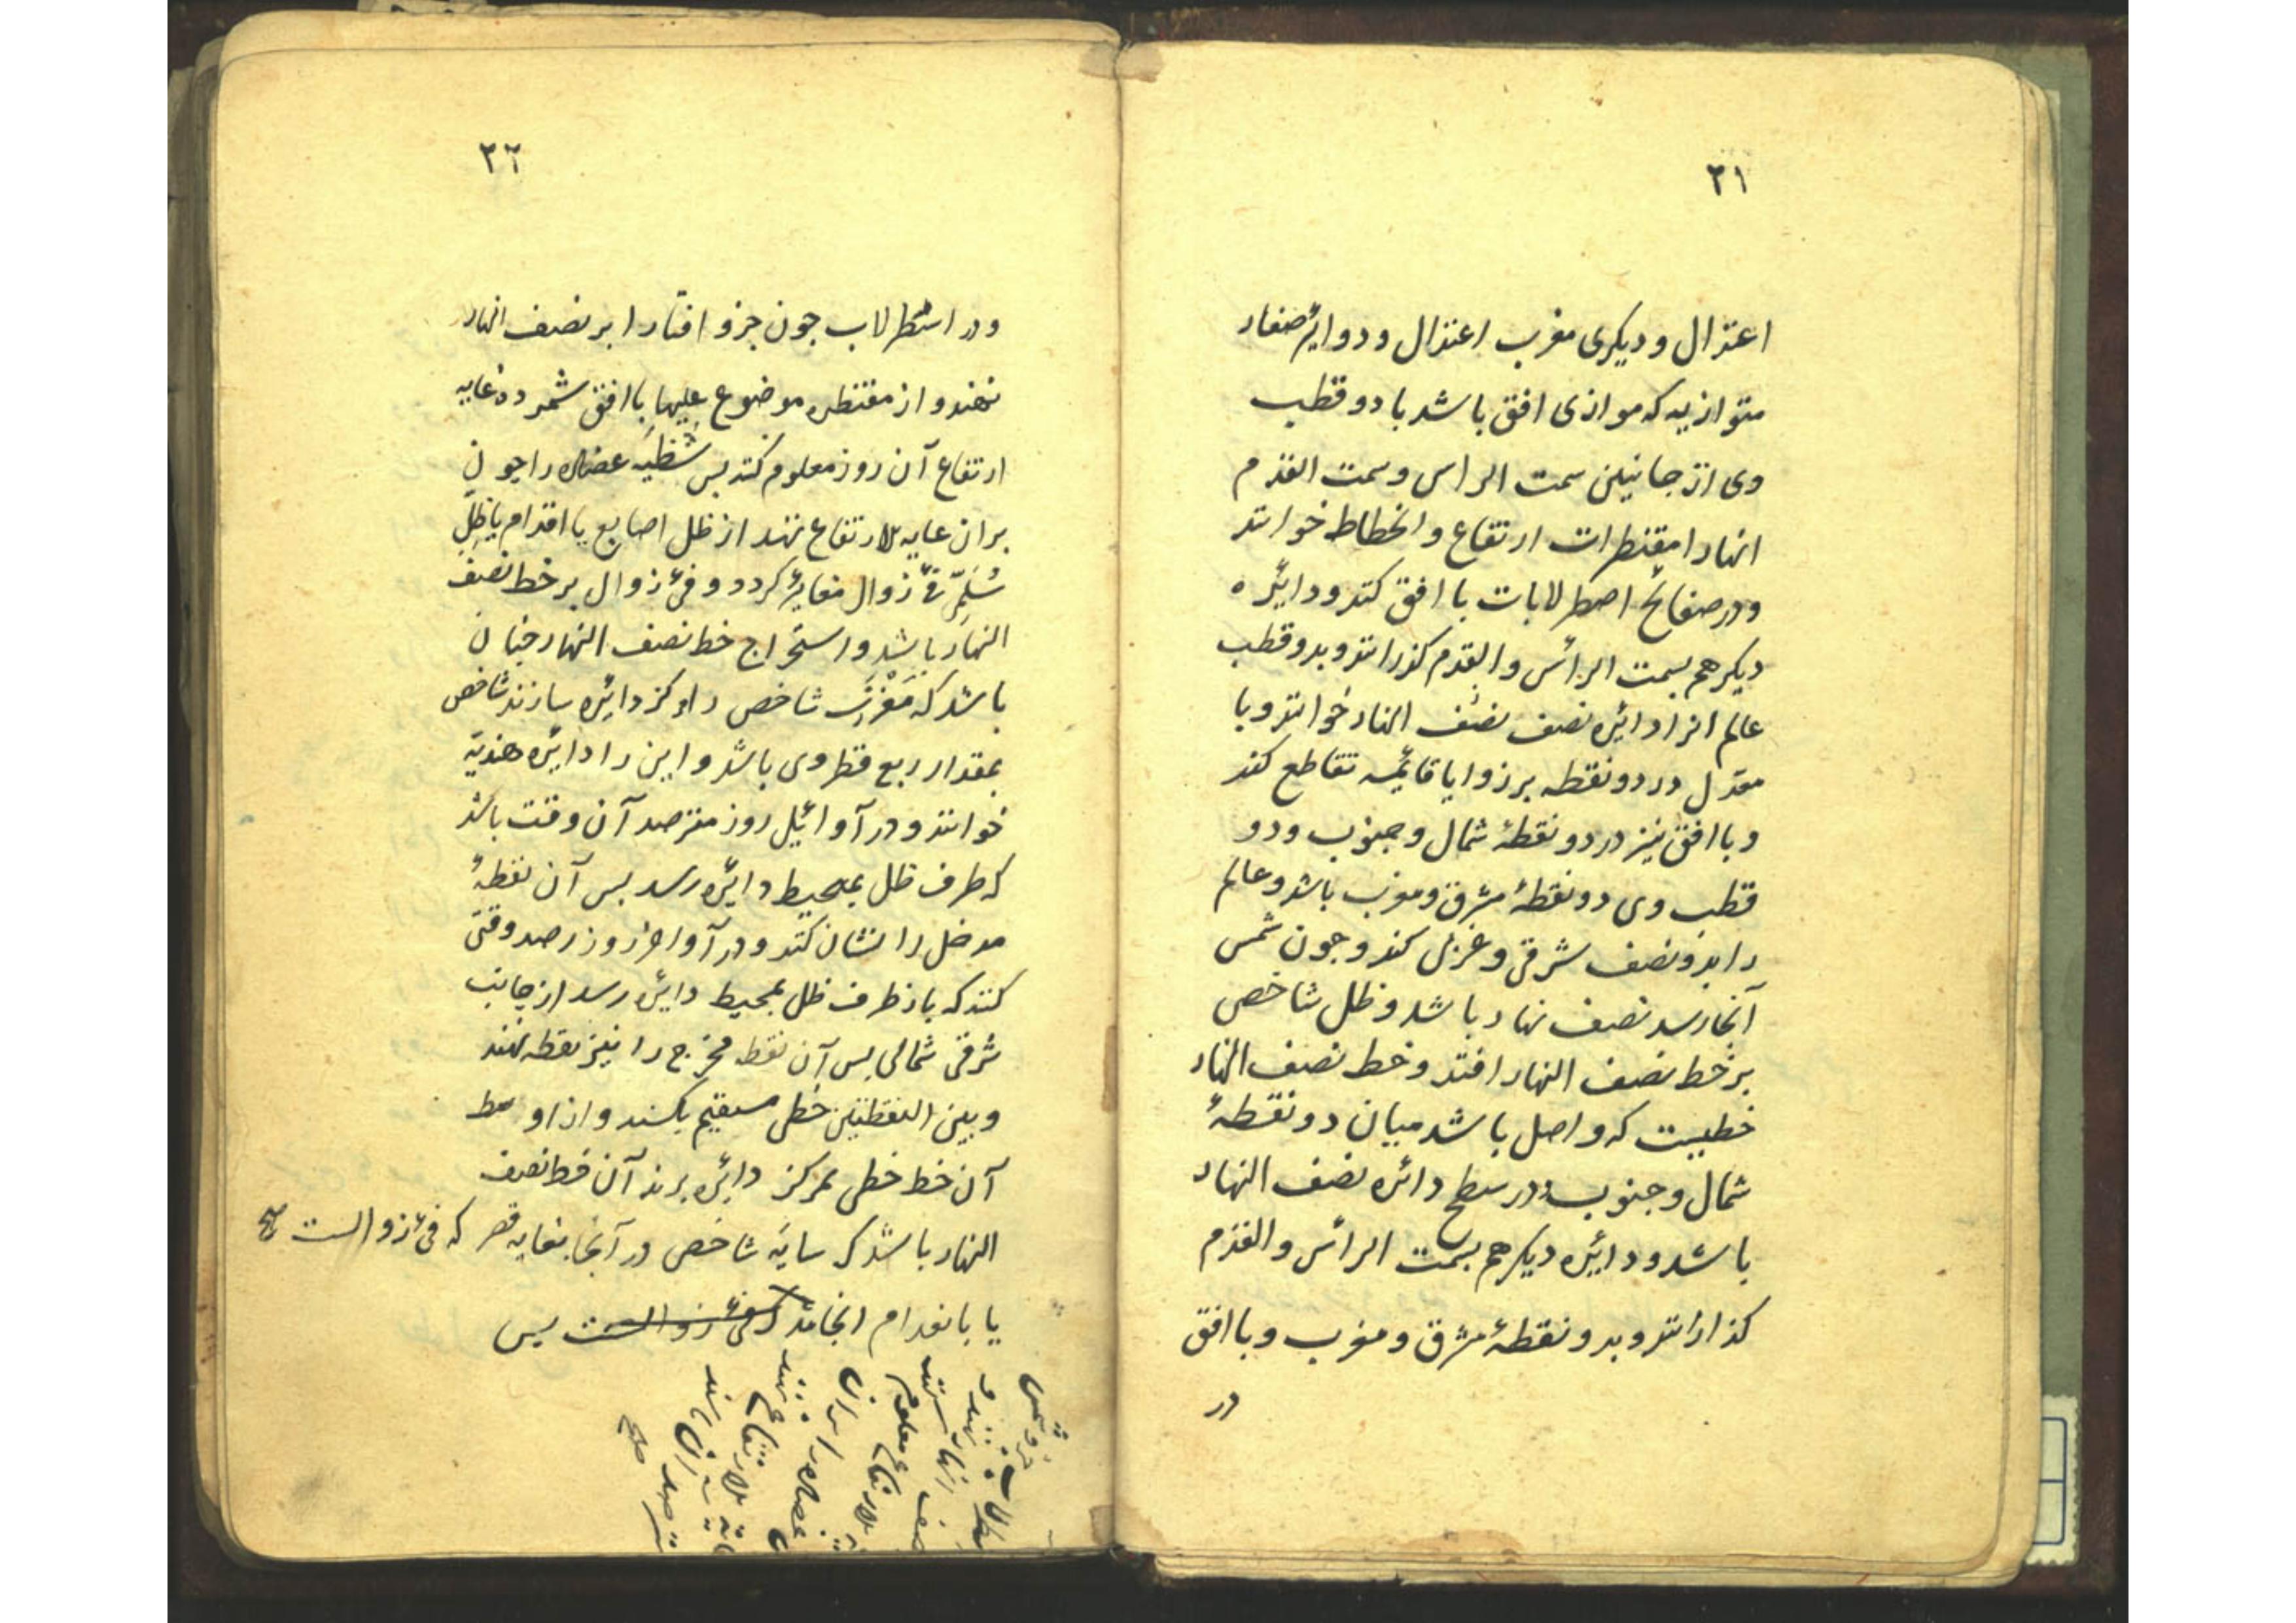 ٣١
اعتدال و دیکری مغرب اعتدال و دوایر صغار
متوازیه که موازی افق باشد با دو قطب
وی از جانبین سمت الراس و سمت القدم
انهارا مقنطرات ارتفاع و انحطاط خوانند
و در صفائح اصطرلابات با افق کنند و دائره
دیکر هم بسمت الرأس و القدم کذرانند و بدو قطب
عالم انرا دائره نصف نصف النهار خوانند و با
معدل در دو نقطه بر زوایا قائمه تقاطع کند
و با افق نیز در دو نقطهٔ شمال و جنوب و دو
قطب وی دو نقطهٔ مشرق و مغرب باشد و عالم
را بدو نصف شرقی و غربی کند و جون شمس
آنجا رسد نصف نهار باشد و ظل شاخص
بر خط نصف النهار افتد و خط نصف النهار
خطیست که واصل باشد میان دو نقطهٔ
شمال و جنوب در سطح دائره نصف النهار
باشد و دائره دیکر هم بسمت الرأس و القدم
کذارانند و بدو نقطهٔ مشرق و مغرب و با افق
در
٣٢
و در اسطرلاب جون جزو افتاب را بر نصف النهار
نهند و از مقنطره موضوع علیها با افق شمرده غایه
ارتفاع آن روز معلوم کنند بس شظیه عضاده را جون
بران غایه الارتفاع نهند از ظل اصابع یا اقدام یا ظل
سُلمی فئ زوال مغایر کردد و فئ زوال بر خط نصف
النهار باشد و استخراج خط نصف النهار جنان
باشد که مَغْرَز شاخص را مرکز دائره سازند شاخص
بمقدار ربع قطر وی باشد و این را دائره هندیّه
خوانند و در آوائل روز مترصد آن وقت باشد
که طرف ظل بمحیط دائره رسد بس آن نقطهٔ
مدخل را نشان کنند و در آواخر روز رصد وقتی
کنند که باز طرف ظل بمحیط دائره رسد از جانب
شرقی شمالی بس آن نقط مخرج را نیز نقطه نهند
و بین النقطتین خطی مستقیم بکشند و از اوسط
آن خط خطی بمرکز دائره برند آن خط نصف
النهار باشد که سایه شاخص در آنجا بغایه قصر که فئ زوالست صح
یا بانعدام انجامد که فئ زوالست بس
جزو شمس
نهند و
نصف النهار
معلوم
الارتفاع
عضاده را بران
نهند
الارتفاع